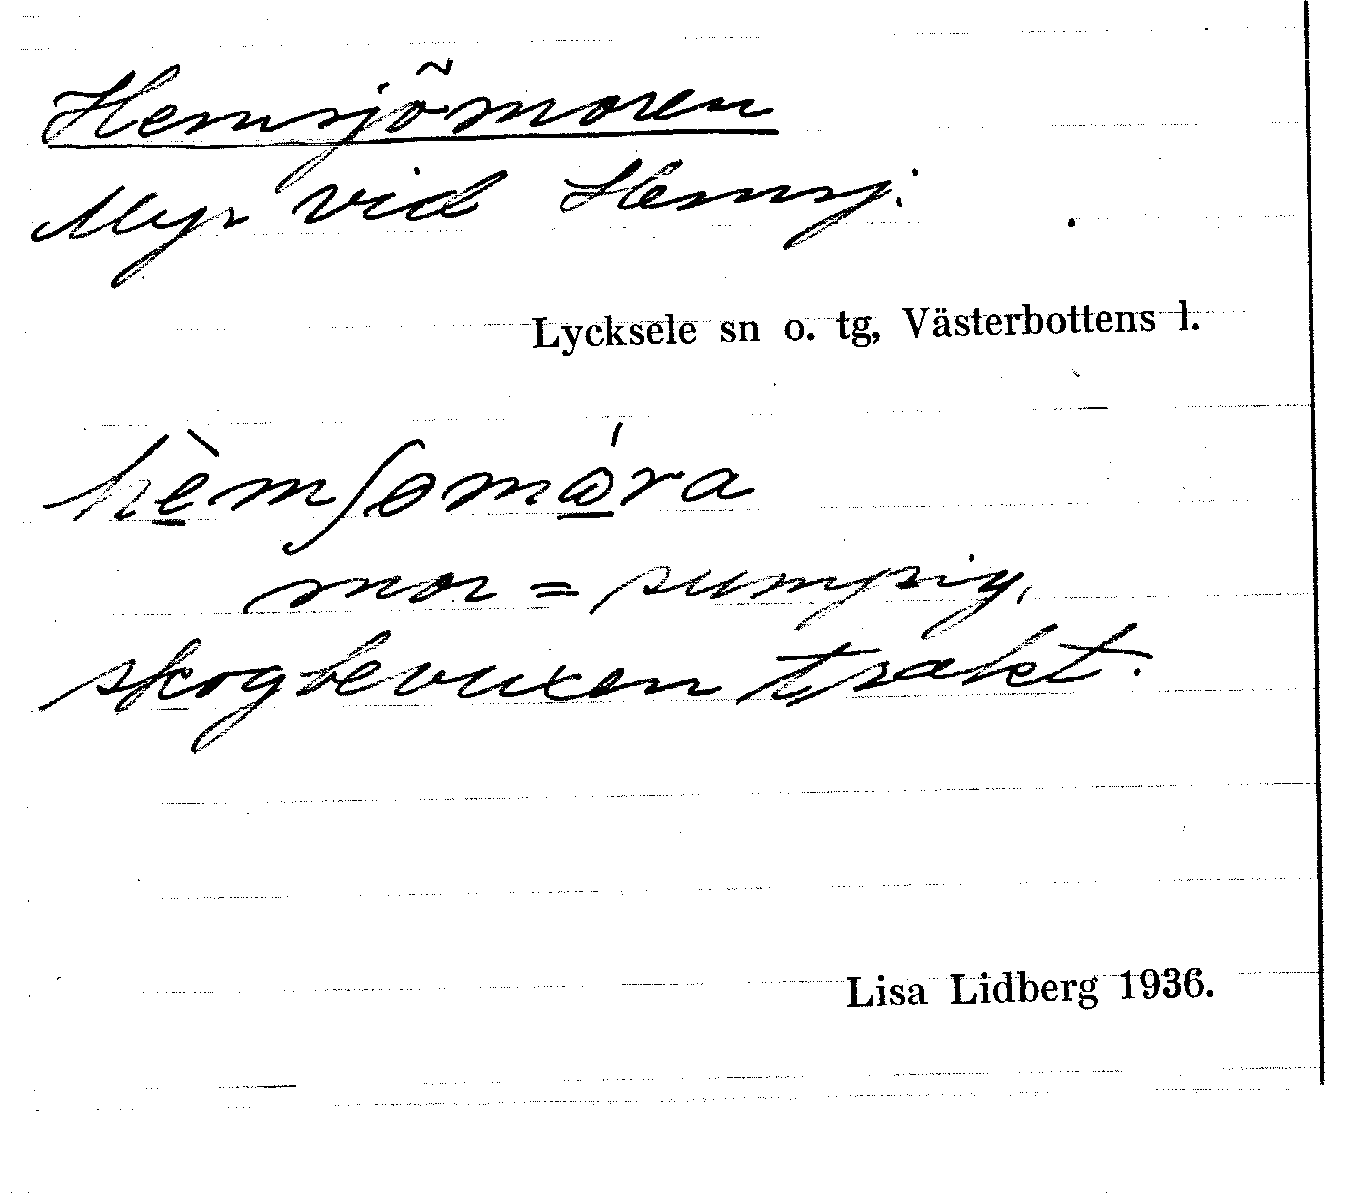 Hemsjömoren
Myr vid Hemsj.
Lycksele sn o. tg, Västerbottens l.
hèmʃɵmǿra
mor = sumpig,
skogbevuxen trakt.
Lisa Lidberg 1936.